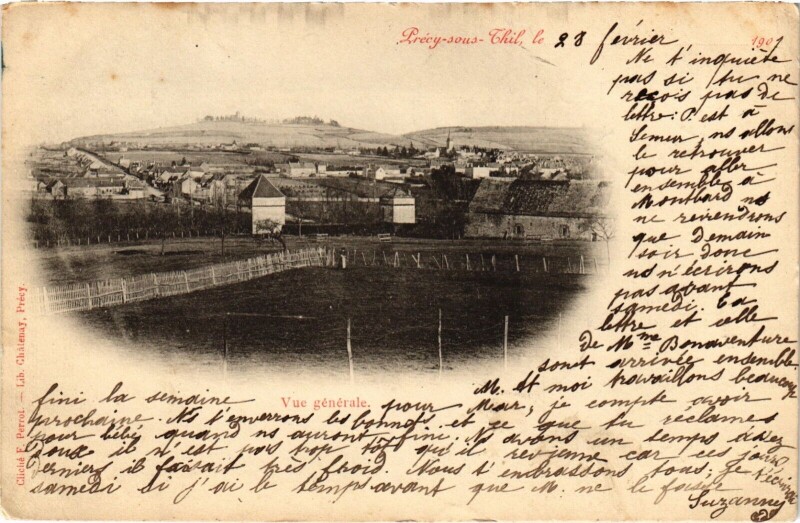 Précy-sous-Thil, le 28 février 1901
Ne t'inquiète
pas si tu ne
reçois pas de
lettre: P. est à
Semur, ns allons
le retrouver
pour aller
ensemble à
Montbard ns
ne reviendrons
que Demain
soir donc
ns n'écrirons
pas avant
samedi. Ta
lettre et celle
de Mme Bonaventure
sont arrivée ensemble.
M. et moi travaillons beaucoup
pour Mar, je compte avoir
fini la semaine
prochaine. Ns t'enverrons les bonnets et ce que tu réclames
pour bébé quand ns aurons fini. Ns avons un temps assez
doux il n'est pas trop tôt qu'il revienne car ces jours
derniers il faisait très froid. Nous t'embrassons tous; je t'écrirai
samedi si j'ai le temps avant que M. ne le fasse
Suzanne
Vue générale.
Cliché F. Perrot. — Lib. Châtenay, Précy.